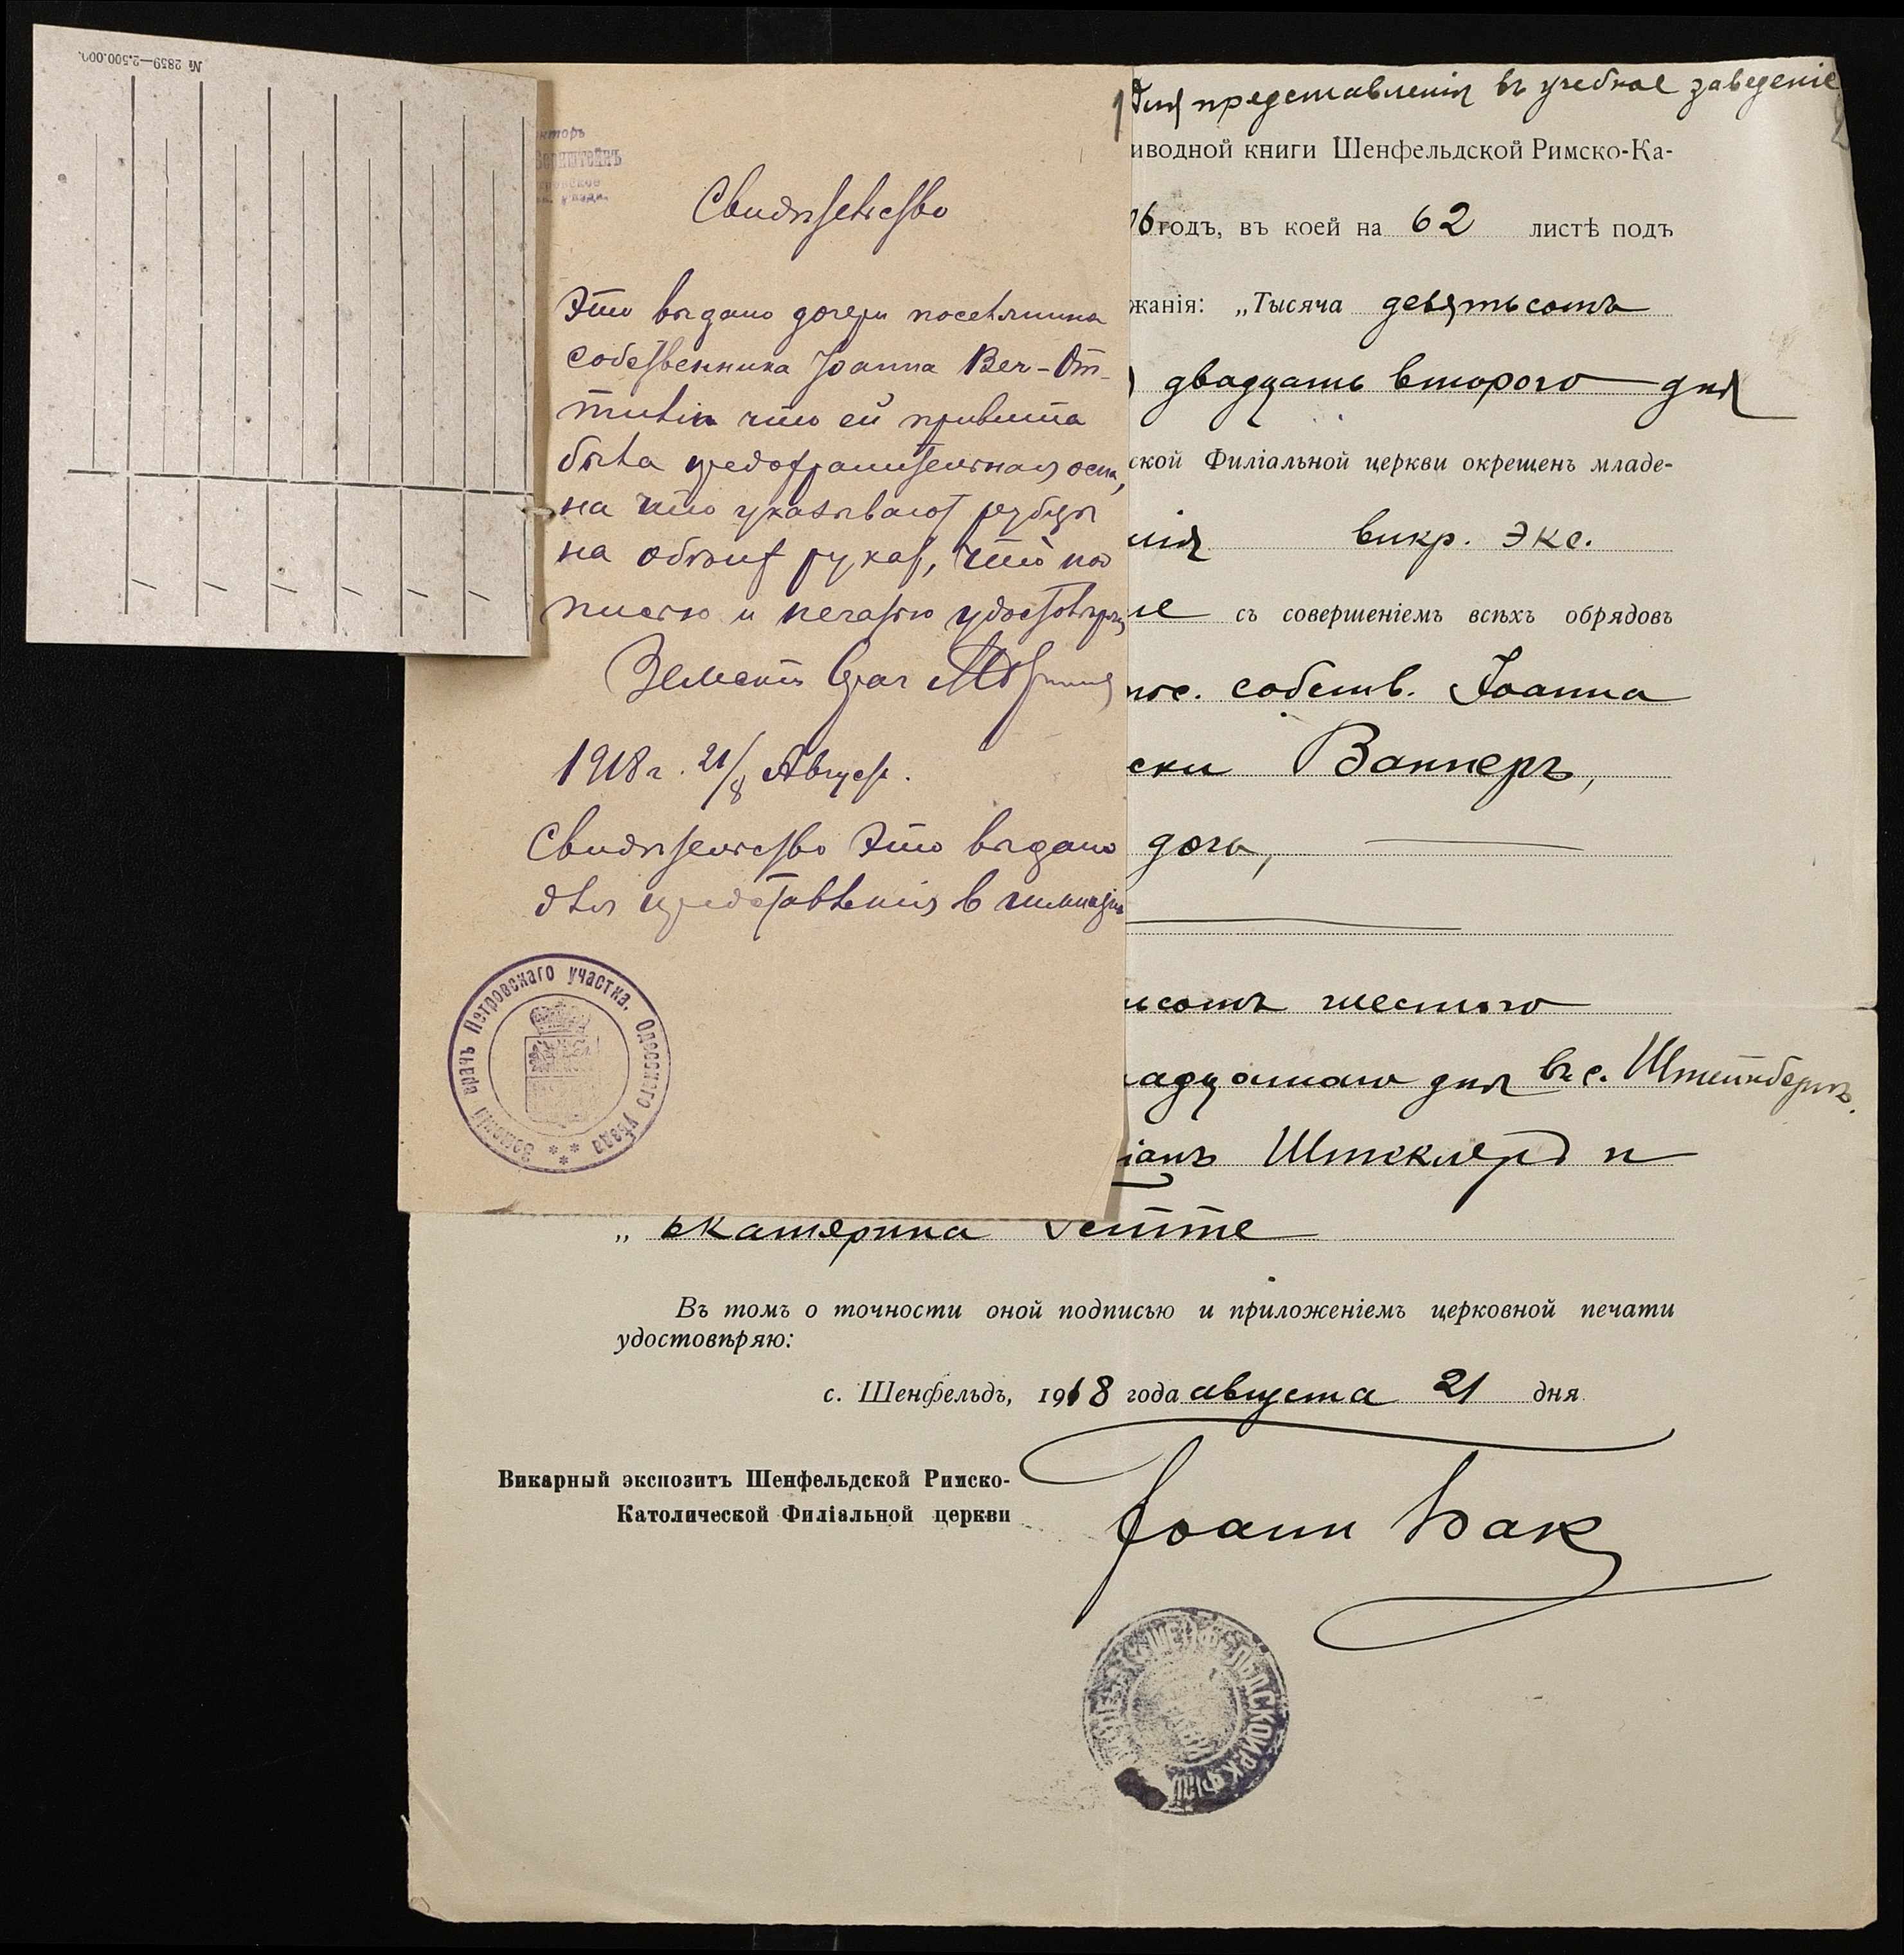 № 2859—2.500.000.
кторъ
Бернштейнъ
Свидѣтельство
Это выдано дочери поселянина
собственника Іоанна Вег - От-
тилiи что ей привита
была предохранительная оспа,
на что указывают рубцы
на обоих руках, что под
писью и печатью удостоверяю
Земский Врач
1918 г. 21/8 Август.
Свидѣтельство это выдано
для представленiя в гимназiю
Земскій врачъ Петровскаго участка, Одесскаго уѣзда
Для представленія въ учебное заведеніе
иводной книги Шенфельдской Римско-Ка-
06 годъ, въ коей на 62 листѣ подъ
жанія: „Тысяча девятьсотъ
двадцать второго дня
ской Филіальной церкви окрещенъ младе-
викр. Экс.
съ совершеніемъ всѣхъ обрядовъ
пос. собств. Іоанна
ски Ваннеръ,
дочь,
ьсотъ шестого
адцатаго дня въ с. Штейнбергъ.
іанъ Штеклеръ и
„ Екатерина Гетте
Въ томъ о точности оной подписью и приложеніемъ церковной печати
удостовѣряю:
с. Шенфельдъ, 1918 года августа 21 дня
Викарный экспозитъ Шенфельдской Римско-
Католической Филіальной церкви
Іоанн Бак
ШЕНФЕЛЬДСКОЙ Р К ФИЛ